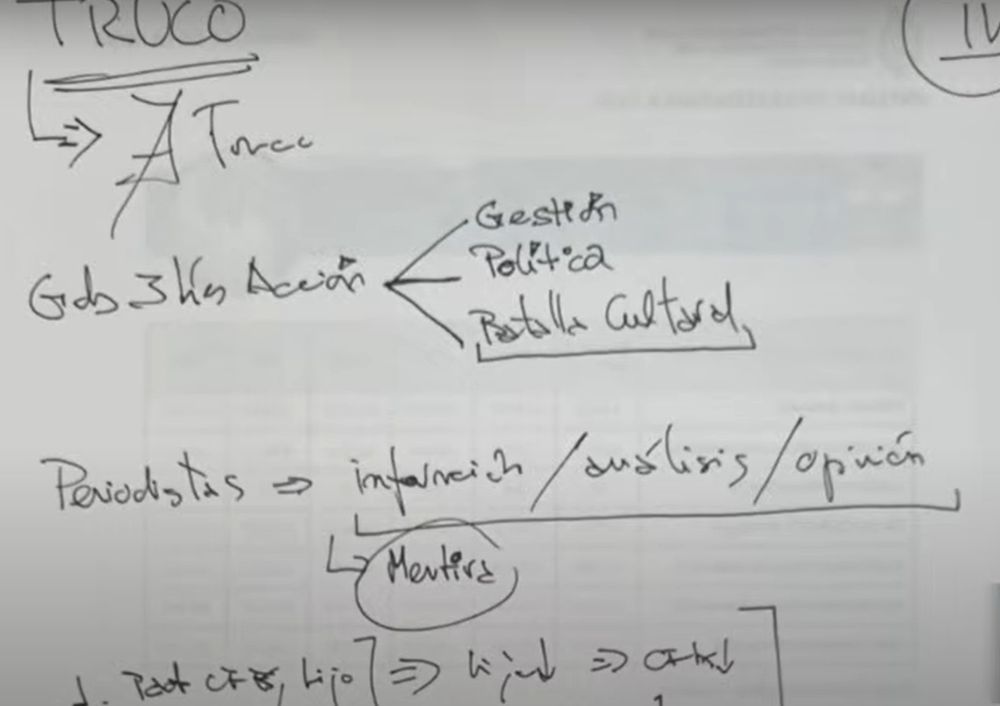 TRUCO
IV
⇒ ∄ Truco
Gob 3 Ls Acción
Gestión
Política
Batalla Cultural
Periodistas ⇒ información / análisis / opinión
Mentira
1. Pact CFK, Lijo ⇒ Lijo↓ ⇒ CFK↓